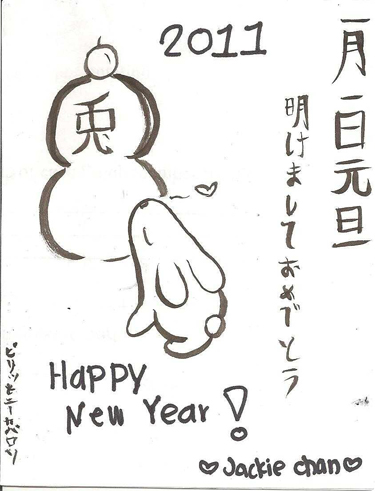 2011
一月一日元旦
明けましておめでとう
兎
Happy
New Year!
Jackie chan